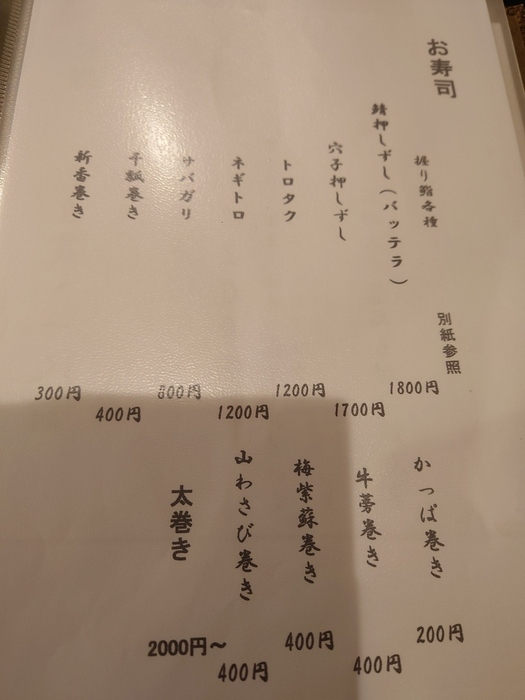 お寿司
握り鮨各種 別紙参照
鯖押しずし(バッテラ) 1800円
穴子押しずし 1700円
トロタク 1200円
ネギトロ 1200円
サバガリ 800円
干瓢巻き 400円
新香巻き 300円
かっぱ巻き 200円
牛蒡巻き 400円
梅紫蘇巻き 400円
山わさび巻き 400円
太巻き 2000円～